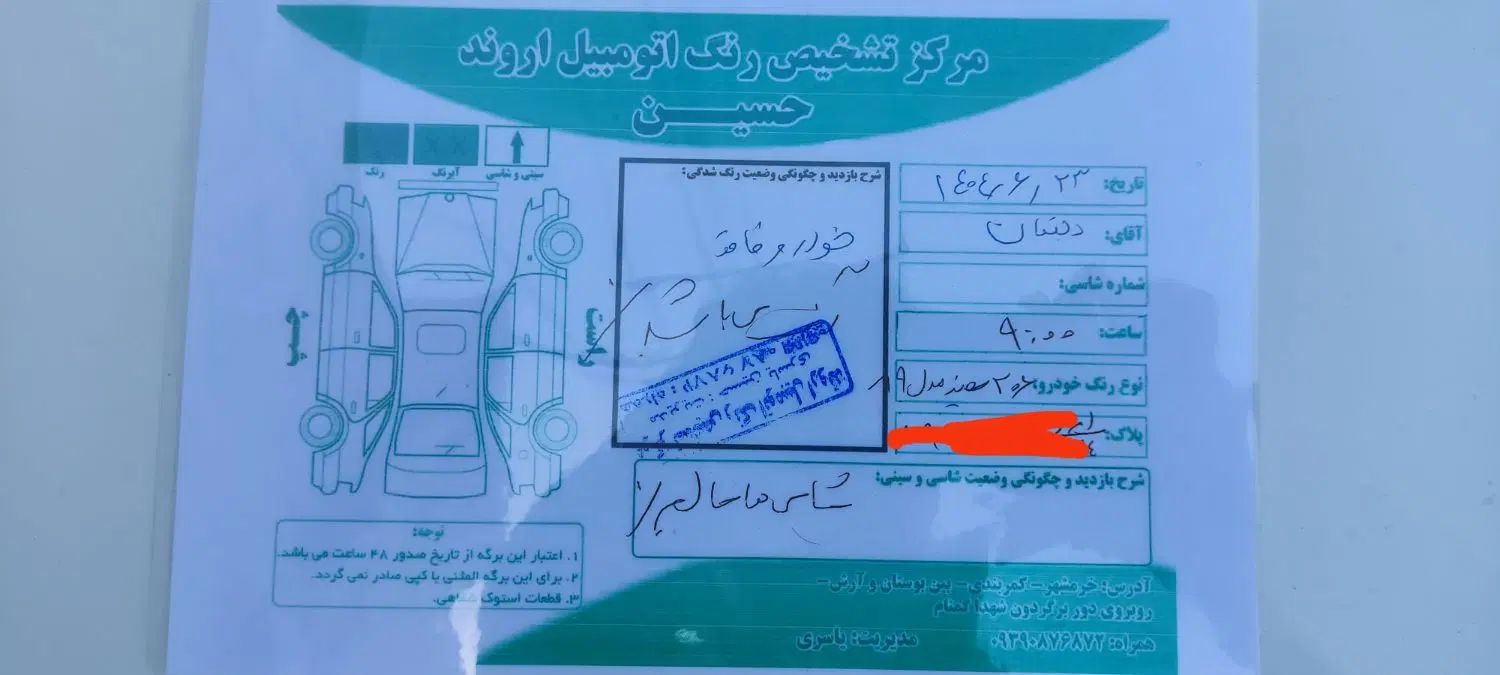 مرکز تشخیص رنگ اتومبیل اروند
حسین
رنگ
آبرنگ
سینی و شاسی
چپ
راست
شرح بازدید و چگونگی وضعیت رنگ شدگی:
خودرو فاقد
رنگ می باشد
تشخیص رنگ اتومبیل اروند
مدیریت: حسین یاسری
تاریخ: ۱۴۰۴/۶/۲۳
آقای: دهقان
شماره شاسی:
ساعت: ۹:۰۰
نوع رنگ خودرو: ۲۰۶ سفید مدل ۸۹
پلاک:
شرح بازدید و چگونگی وضعیت شاسی و سینی:
شاسی ها سالم
توجه:
۱. اعتبار این برگه از تاریخ صدور ۴۸ ساعت می باشد.
۲. برای این برگه المثنی یا کپی صادر نمی گردد.
۳. قطعات استوک شفاهی.
آدرس: خرمشهر - کمربندی - بین بوستان و آرش -
روبروی دور برگردون شهدا گمنام
همراه: ۰۹۳۹۰۸۷۶۸۷۲
مدیریت: یاسری